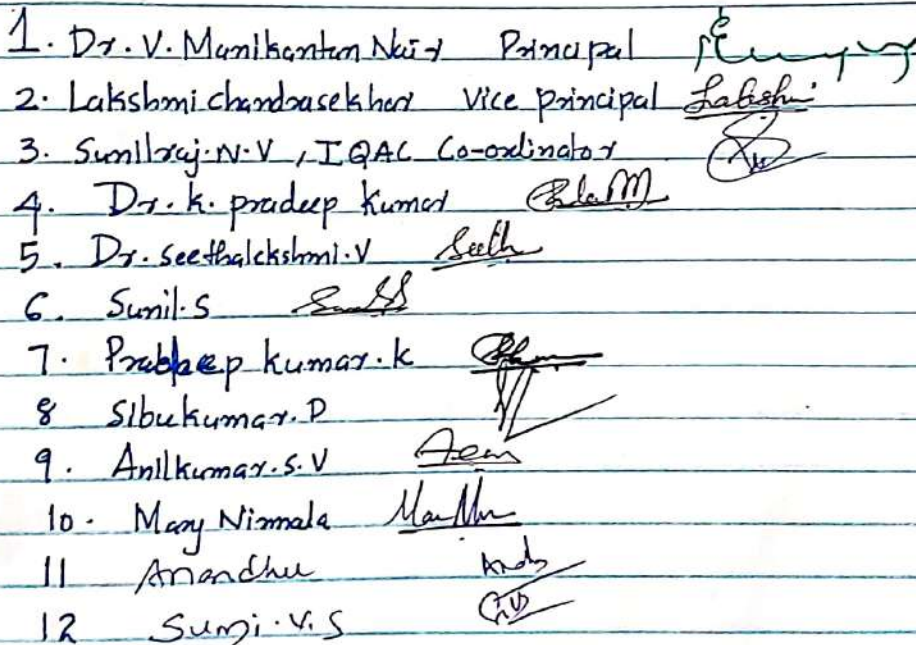 1. Dr. V. Manikantan Nair Principal
2. Lakshmi chandrasekhar Vice principal Lakshmi
3. Sunilraj. N. V , IQAC Co-ordinator
4. Dr. k. pradeep kumar
5. Dr. seethalekshmi. V Seeth
6. Sunil. S
7. Pradeep kumar. k
8 Sibukumar. D
9. Anilkumar. S. V
10. Mary Nirmala
11 Anandhu
12 Sumi. V. S